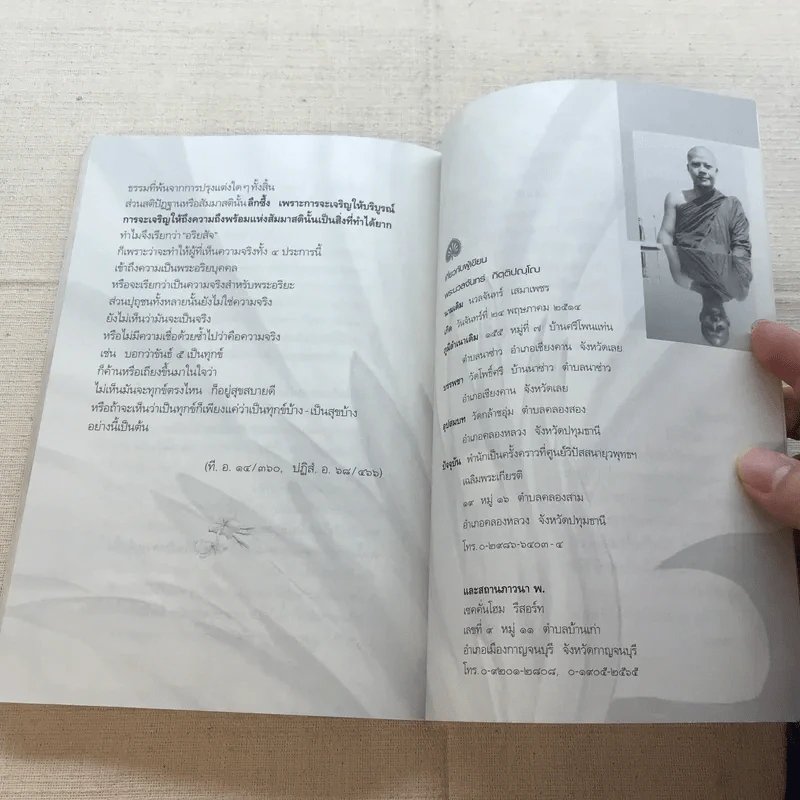 ธรรมที่พ้นจากการปรุงแต่งใด ๆ ทั้งสิ้น
ส่วนสติปัฏฐานหรือสัมมาสตินั้นลึกซึ้ง เพราะการจะเจริญให้บริบูรณ์
การจะเจริญให้ถึงความถึงพร้อมแห่งสัมมาสตินั้นเป็นสิ่งที่ทำได้ยาก
ทำไมจึงเรียกว่า "อริยสัจ"
ก็เพราะว่าจะทำให้ผู้ที่เห็นความจริงทั้ง ๔ ประการนี้
เข้าถึงความเป็นพระอริยบุคคล
หรือจะเรียกว่าเป็นความจริงสำหรับพระอริยะ
ส่วนปุถุชนทั้งหลายนั้นยังไม่ใช่ความจริง
ยังไม่เห็นว่ามันจะเป็นจริง
หรือไม่มีความเชื่อด้วยซ้ำไปว่าคือความจริง
เช่น บอกว่าขันธ์ ๕ เป็นทุกข์
ก็ค้านหรือเถียงขึ้นมาในใจว่า
ไม่เห็นมันจะทุกข์ตรงไหน ก็อยู่สุขสบายดี
หรือถ้าจะเห็นว่าเป็นทุกข์ก็เพียงแค่ว่าเป็นทุกข์บ้าง - เป็นสุขบ้าง
อย่างนี้เป็นต้น
(ที. อ. ๑๔/๓๖๐, ปฏิสํ. อ. ๖๘/๔๖๖)
เกี่ยวกับผู้เขียน
พระนวลจันทร์ กิตติปญฺโญ
นามเดิม นวลจันทร์ เสมาเพชร
เกิด วันจันทร์ที่ ๒๔ พฤษภาคม ๒๕๑๔
ภูมิลำเนาเดิม ๑๕๕ หมู่ที่ ๗ บ้านศรีโพนแท่น
ตำบลนาซ่าว อำเภอเชียงคาน จังหวัดเลย
บรรพชา วัดโพธิ์ศรี บ้านนาซ่าว ตำบลนาซ่าว
อำเภอเชียงคาน จังหวัดเลย
อุปสมบท วัดกล้าชอุ่ม ตำบลคลองสอง
อำเภอคลองหลวง จังหวัดปทุมธานี
ปัจจุบัน พำนักเป็นครั้งคราวที่ศูนย์วิปัสสนายุวพุทธฯ
เฉลิมพระเกียรติ
๑๙ หมู่ ๑๖ ตำบลคลองสาม
อำเภอคลองหลวง จังหวัดปทุมธานี
โทร. ๐-๒๙๘๖-๖๔๐๓-๔
และสถานภาวนา พ.
เซคคั่นโฮม รีสอร์ท
เลขที่ ๙ หมู่ ๑๑ ตำบลบ้านเก่า
อำเภอเมืองกาญจนบุรี จังหวัดกาญจนบุรี
โทร. ๐-๙๒๐๑-๒๘๐๘, ๐-๑๙๐๕-๒๕๖๕